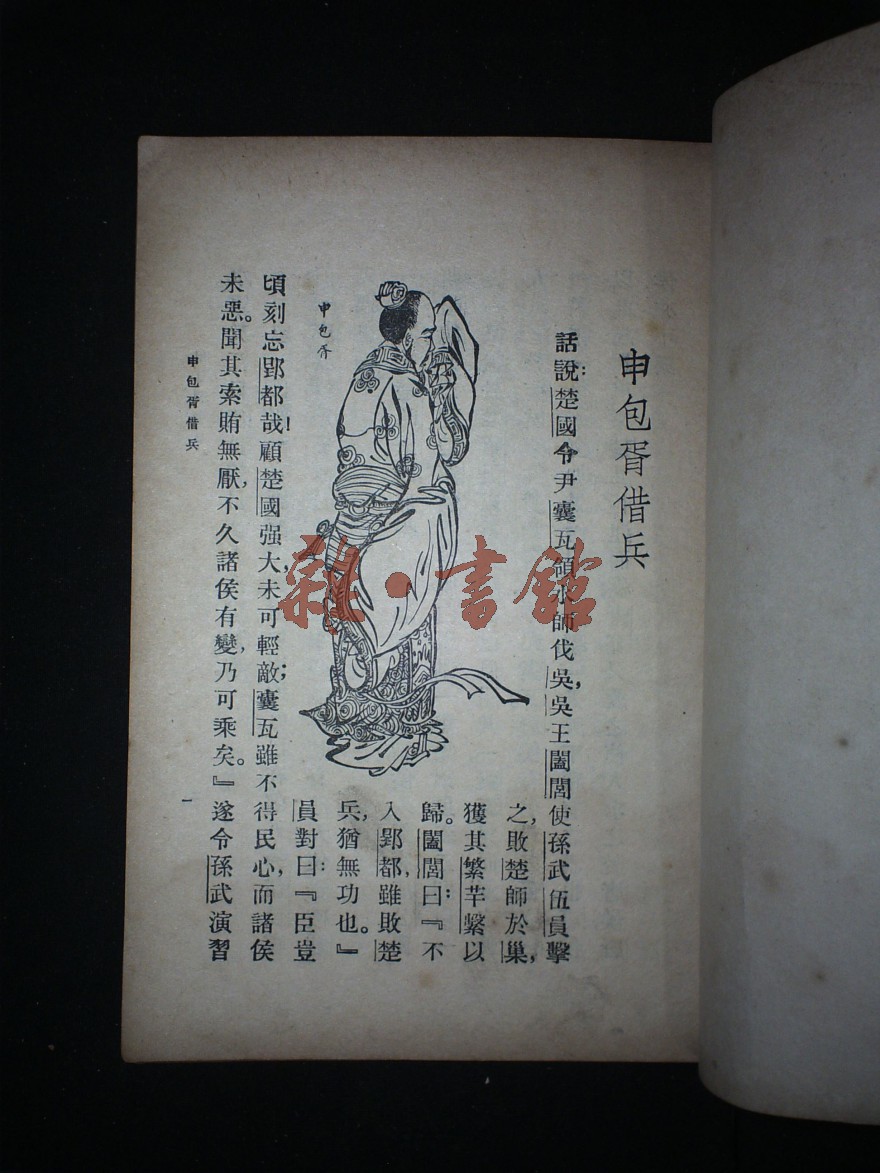 申包胥借兵
話說：楚國令尹囊瓦領水師伐吳，吳王闔閭使孫武伍員擊
之，敗楚師於巢，
獲其繁芊繫以
歸。闔閭曰：『不
入郢都，雖敗楚
兵，猶無功也。』
員對曰：『臣豈
申包胥
頃刻忘郢都哉！顧楚國强大，未可輕敵；囊瓦雖不得民心，而諸侯
未惡。聞其索賄無厭，不久諸侯有變，乃可乘矣。』遂令孫武演習
申包胥借兵
一
雜·書館